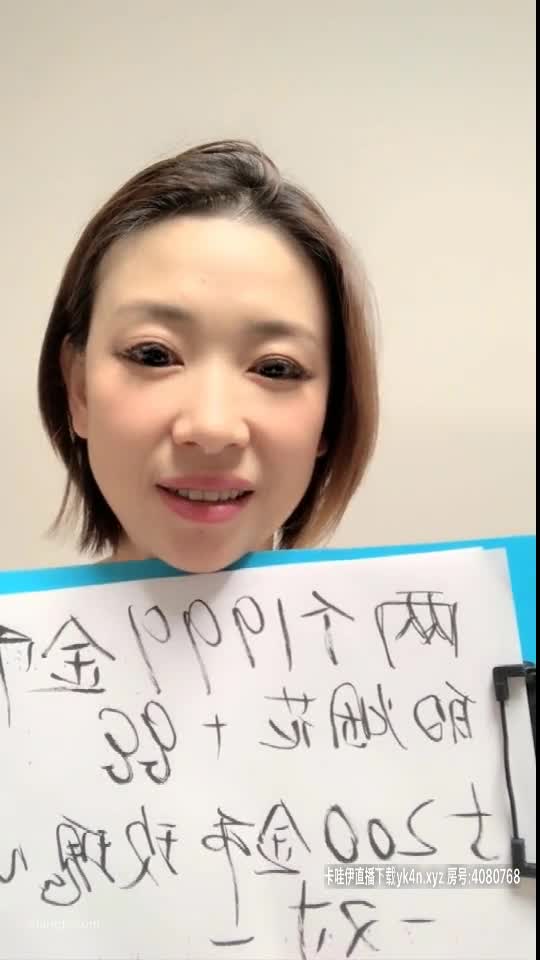 两个1999金
的烟花 +
200金币玫瑰
一对一
卡哇伊直播下载yk4n.xyz 房号:4080768